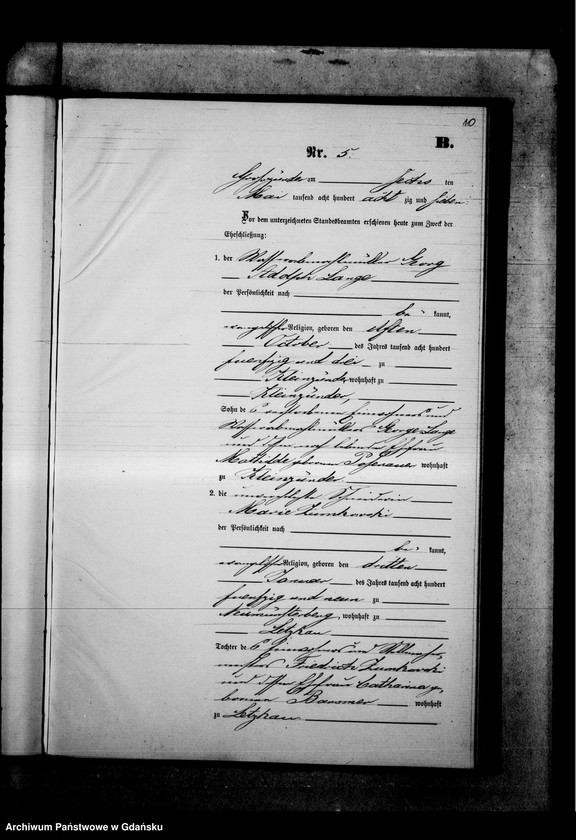 10
B.
Nr. 5.
Großzünder am sechs ten
Mai tausend acht hundert acht zig und sieben
Vor dem unterzeichneten Standesbeamten erschienen heute zum Zweck der
Eheschließung:
1. der Georg
Adolph Lange
der Persönlichkeit nach
be kannt,
evangelischer Religion, geboren den elften
October des Jahres tausend acht hundert
fuenfzig und drei zu
Kleinzünder wohnhaft zu
Kleinzünder,
Sohn des verstorbenen Einwohners und
George Lange
und dessen noch lebende Ehefrau
Mathilde geborene wohnhaft
zu Kleinzünder
2. die unverehelichte
Marie Zumkowski
der Persönlichkeit nach
be kannt,
evangelischer Religion, geboren den dritten
Januar des Jahres tausend acht hundert
fuenfzig und neun zu
Neumünsterberg, wohnhaft zu
Letzkau
Tochter des Einwohners und
Friedrich Zumkowski
und dessen Ehefrau Catharina ge-
borenen wohnhaft
zu Letzkau
Archiwum Państwowe w Gdańsku